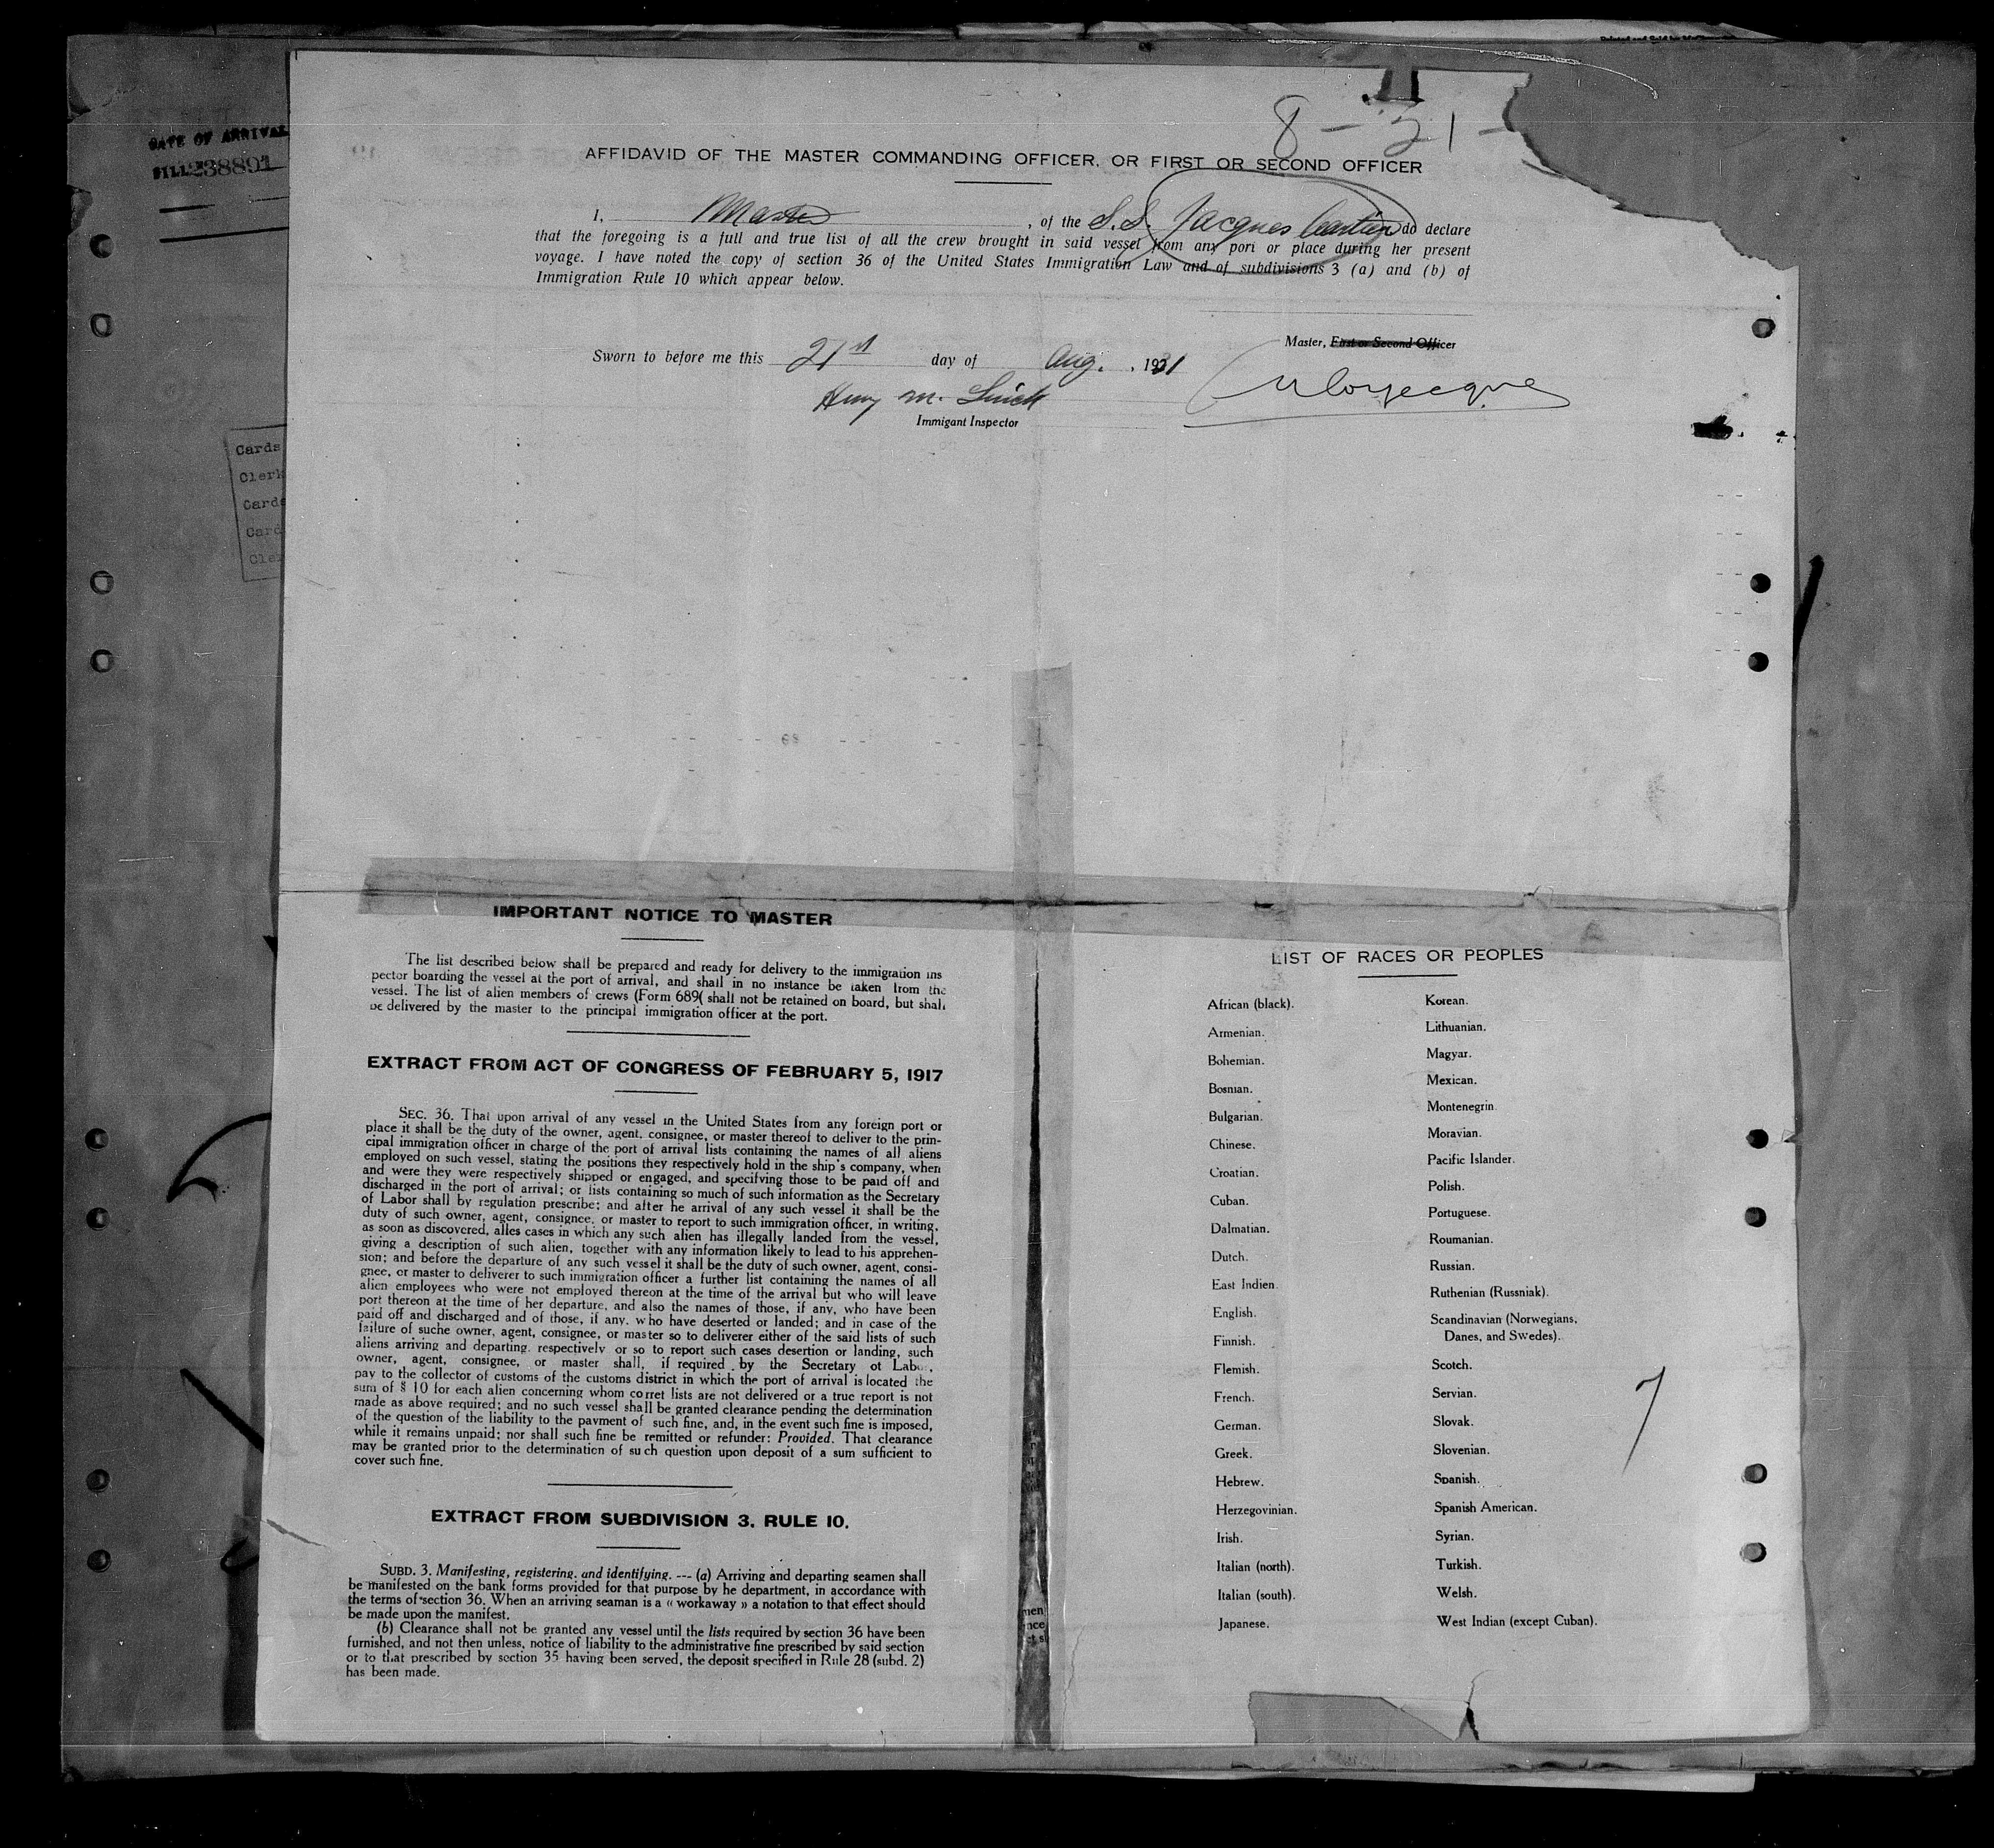 DATE OF ARRIVAL
238891
Cards
Clerk
Cards
Card
Cler
8 - 21 -
AFFIDAVID OF THE MASTER COMMANDING OFFICER, OR FIRST OR SECOND OFFICER
I, Master , of the S.S. Jacques Cartier do declare
that the foregoing is a full and true list of all the crew brought in said vessel from any port or place during her present
voyage. I have noted the copy of section 36 of the United States Immigration Law and of subdivisions 3 (a) and (b) of
Immigration Rule 10 which appear below.
Master, First or Second Officer
Sworn to before me this 21st day of Aug. , 1921
Immigant Inspector
IMPORTANT NOTICE TO MASTER
The list described below shall be prepared and ready for delivery to the immigration ins
pector boarding the vessel at the port of arrival, and shall in no instance be taken from the
vessel. The list of alien members of crews (Form 689( shall not be retained on board, but shall
be delivered by the master to the principal immigration officer at the port.
EXTRACT FROM ACT OF CONGRESS OF FEBRUARY 5, 1917
SEC. 36. That upon arrival of any vessel in the United States from any foreign port or
place it shall be the duty of the owner, agent, consignee, or master thereof to deliver to the prin-
cipal immigration officer in charge of the port of arrival lists containing the names of all aliens
employed on such vessel, stating the positions they respectively hold in the ship's company, when
and were they were respectively shipped or engaged, and specifying those to be paid off and
discharged in the port of arrival; or lists containing so much of such information as the Secretary
of Labor shall by regulation prescribe; and after he arrival of any such vessel it shall be the
duty of such owner, agent, consignee, or master to report to such immigration officer, in writing,
as soon as discovered, alles cases in which any such alien has illegally landed from the vessel,
giving a description of such alien, together with any information likely to lead to his apprehen-
sion; and before the departure of any such vessel it shall be the duty of such owner, agent, consi-
gnee, or master to deliverer to such immigration officer a further list containing the names of all
alien employees who were not employed thereon at the time of the arrival but who will leave
port thereon at the time of her departure, and also the names of those, if any, who have been
paid off and discharged and of those, if any, who have deserted or landed; and in case of the
failure of suche owner, agent, consignee, or master so to deliverer either of the said lists of such
aliens arriving and departing, respectively or so to report such cases desertion or landing, such
owner, agent, consignee, or master shall, if required by the Secretary ot Labor,
pay to the collector of customs of the customs district in which the port of arrival is located the
sum of $ 10 for each alien concerning whom corret lists are not delivered or a true report is not
made as above required; and no such vessel shall be granted clearance pending the determination
of the question of the liability to the payment of such fine, and, in the event such fine is imposed,
while it remains unpaid; nor shall such fine be remitted or refunder: Provided. That clearance
may be granted prior to the determination of such question upon deposit of a sum sufficient to
cover such fine.
EXTRACT FROM SUBDIVISION 3, RULE 10.
SUBD. 3. Manifesting, registering, and identifying. --- (a) Arriving and departing seamen shall
be manifested on the bank forms provided for that purpose by he department, in accordance with
the terms of section 36. When an arriving seaman is a « workaway » a notation to that effect should
be made upon the manifest.
(b) Clearance shall not be granted any vessel until the lists required by section 36 have been
furnished, and not then unless, notice of liability to the administrative fine prescribed by said section
or to that prescribed by section 35 having been served, the deposit specified in Rule 28 (subd. 2)
has been made.
LIST OF RACES OR PEOPLES
African (black).
Armenian.
Bohemian.
Bosnian.
Bulgarian.
Chinese.
Croatian.
Cuban.
Dalmatian.
Dutch.
East Indien.
English.
Finnish.
Flemish.
French.
German.
Greek.
Hebrew.
Herzegovinian.
Irish.
Italian (north).
Italian (south).
Japanese.
Korean.
Lithuanian.
Magyar.
Mexican.
Montenegrin
Moravian.
Pacific Islander.
Polish.
Portuguese.
Roumanian.
Russian.
Ruthenian (Russniak).
Scandinavian (Norwegians,
Danes, and Swedes).
Scotch.
Servian.
Slovak.
Slovenian.
Spanish.
Spanish American.
Syrian.
Turkish.
Welsh.
West Indian (except Cuban).
7